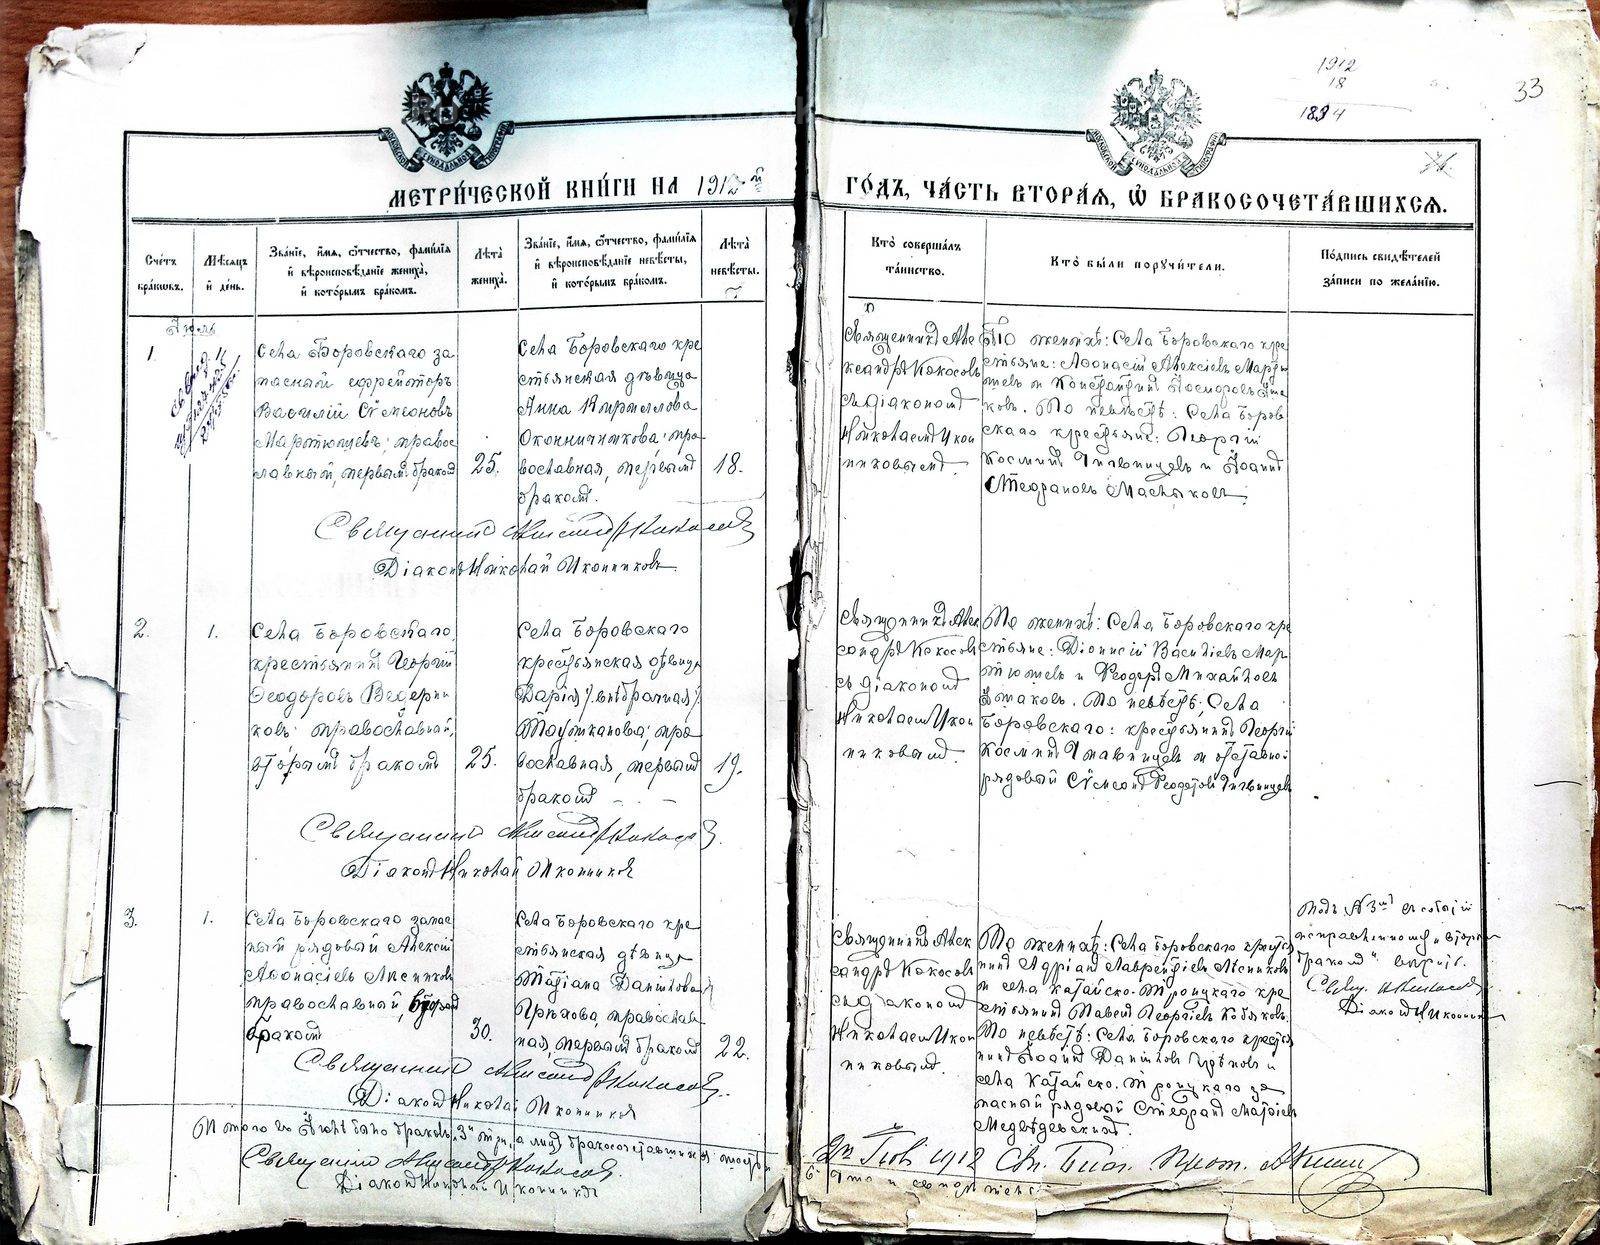 1912
18
1894
33
МЕТРИ́ЧЕСКОЙ КНИ́ГИ НА 1912й
ГО́ДЪ, ЧА́СТЬ ВТОРА́Я, Ѽ БРАКОСОЧЕТА́ВШИХСЯ.
Сче́тъ бра́ковъ.
Мѣ́сяцъ и҆ де́нь.
Зва́нїе, и҆́мя, ѻ҆́тчество, фами́лїя и҆ вѣроисповѣ́данїе жениха́, и҆ кото́рымъ бра́комъ.
Лѣ́та жениха́.
Зва́нїе, и҆́мя, ѻ҆́тчество, фами́лїя и҆ вѣроисповѣ́данїе невѣ́сты, и҆ кото́рымъ бра́комъ.
Лѣ́та невѣ́сты.
Кто̀ соверша́лъ та́инство.
Кто̀ бы́ли поручи́тели.
По́дпись свидѣ́телей за́писи по жела́нїю.
1.
Села Боровскаго за
пасный ефрейторъ
Василій Сѵмеоновъ
Мартюшевъ; правос
лавный, первымъ бракомъ
25.
Села Боровскаго кре
стьянская дѣвица
Анна Кириллова
Оконничникова; пра
вославная, первымъ
бракомъ.
18.
Священникъ Але
ксандръ Кокосовъ
съ діакономъ
Николаемъ Икон
никовымъ.
По женихѣ: Села Боровскаго кре
стьяне: Аѳонасій Алексіевъ Мартю
шевъ и Константинъ
По невѣстѣ: Села Боров
скаго крестьяне: Георгій
Косминъ и Іоаннъ
Стефановъ
Священникъ Александръ Кокосовъ
Діаконъ Николай Иконниковъ.
2.
1.
Села Боровскаго
крестьянинъ Георгій
Ѳеодоровъ Ведерни
ковъ; православный,
вторымъ бракомъ
25.
Села Боровскаго
крестьянская дѣвица
Дарія (внѣбрачная)
пра
вославная, первымъ
бракомъ
19.
Священникъ Алек
сандръ Кокосовъ
съ діакономъ
Николаемъ Икон
никовымъ.
По женихѣ: Села Боровскаго кре
стьяне: Діонисій Василіевъ Мар
тюшевъ и Ѳеодоръ Михайловъ
По невѣстѣ: Села
Боровскаго: крестьянинъ Георгій
Косминъ и отставной
рядовый Сѵмеонъ Ѳеодоровъ
Священникъ Александръ Кокосовъ
Діаконъ Николай Иконниковъ
3.
1.
Села Боровскаго запас
ный рядовый Алексій
Аѳонасіевъ Лѣсниковъ
православный, вторымъ
бракомъ
30.
Села Боровскаго кре
стьянская дѣвица
Татіана Даніилова
Грѣхова, православ
ная, первымъ бракомъ
22.
Священникъ Алек
сандръ Кокосовъ
съ діакономъ
Николаемъ Икон
никовымъ.
По женихѣ: Села Боровскаго крестья
нинъ Адріанъ Лаврентіевъ Лѣсниковъ
и села Катайско-Троицкаго кре
стьянинъ Павелъ Георгіевъ
По невѣстѣ: Села Боровскаго крестья
нинъ Іоаннъ Даніиловъ Грѣховъ и
села Катайско-Троицкаго за
пасный рядовый Стефанъ Матѳіевъ
Медвѣдевскихъ.
Подъ № 3мъ
исправленному „вторымъ
бракомъ" вѣрить.
Свящ. А Кокосовъ
Діаконъ Н Иконниковъ
Священникъ Александръ Кокосовъ
Діаконъ Николай Иконниковъ
Итого въ Іюлѣ было браковъ „3" три, а лицъ бракосочетавшихся шесть
Священникъ Александръ Кокосовъ.
Діаконъ Николай Иконниковъ
1912 Св. Благ. Прот.